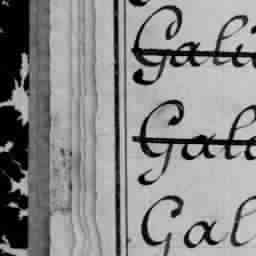 Gali
Gala
Gal